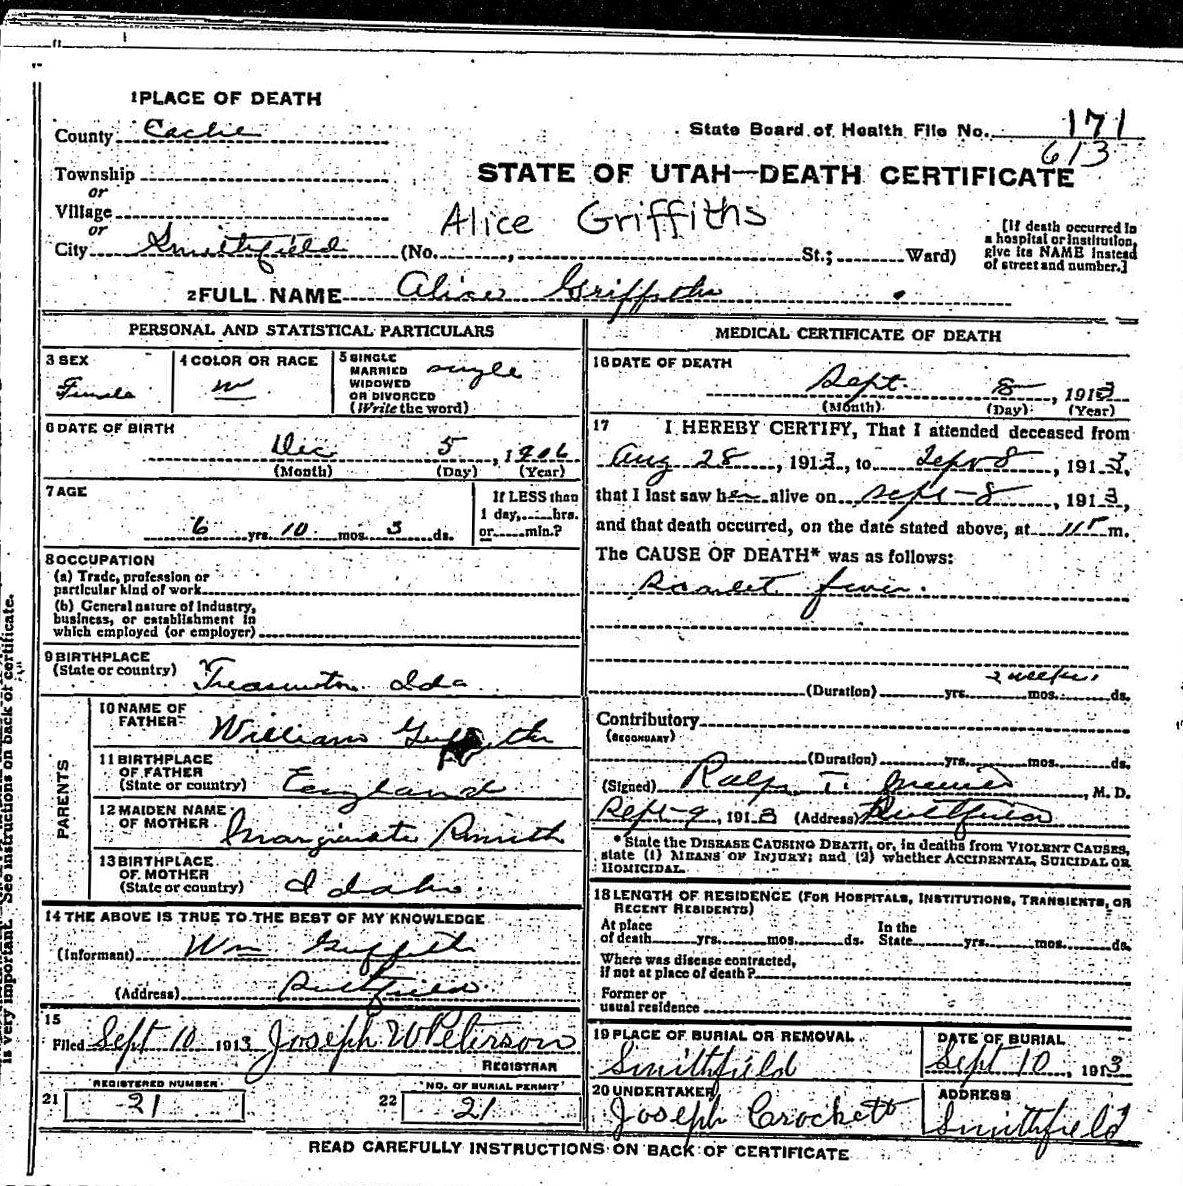 1 PLACE OF DEATH
County Cache
State Board of Health File No. 171
613
Township
or
Village
or
City Smithfield
STATE OF UTAH—DEATH CERTIFICATE
Alice Griffiths
(No. , St.; Ward)
[If death occurred in
a hospital or institution,
give its NAME instead
of street and number.]
2 FULL NAME Alice Griffiths
PERSONAL AND STATISTICAL PARTICULARS
3 SEX
Female
4 COLOR OR RACE
W
5 SINGLE
MARRIED
WIDOWED
OR DIVORCED
(Write the word)
single
6 DATE OF BIRTH
Dec 5, 1906
(Month) (Day) (Year)
7 AGE
6 yrs. 10 mos. 3 ds.
If LESS than
1 day, hrs.
or min.?
8 OCCUPATION
(a) Trade, profession or
particular kind of work
(b) General nature of Industry,
business, or establishment in
which employed (or employer)
9 BIRTHPLACE
(State or country) Ida
PARENTS
10 NAME OF
FATHER William Griffiths
11 BIRTHPLACE
OF FATHER
(State or country) England
12 MAIDEN NAME
OF MOTHER
13 BIRTHPLACE
OF MOTHER
(State or country) Idaho.
14 THE ABOVE IS TRUE TO THE BEST OF MY KNOWLEDGE
(Informant) Wm Griffith
(Address) Smithfield
15
Filed Sept 10 1913 Joseph W Peterson
REGISTRAR
REGISTERED NUMBER
21 21
NO. OF BURIAL PERMIT
22 21
MEDICAL CERTIFICATE OF DEATH
16 DATE OF DEATH
Sept. 8, 1913
(Month) (Day) (Year)
17 I HEREBY CERTIFY, That I attended deceased from
Aug 28, 1913, to Sept 8, 1913,
that I last saw her alive on Sept-8, 1913,
and that death occurred, on the date stated above, at m.
The CAUSE OF DEATH* was as follows:
Scarlet fever.
2 weeks
(Duration) yrs. mos. ds.
Contributory
(SECONDARY)
(Duration) yrs. mos. ds.
(Signed) Ralph T. , M. D.
Sept-9, 1913 (Address) Smithfield
* State the DISEASE CAUSING DEATH, or, in deaths from VIOLENT CAUSES,
state (1) MEANS OF INJURY; and (2) whether ACCIDENTAL, SUICIDAL OR
HOMICIDAL.
18 LENGTH OF RESIDENCE (FOR HOSPITALS, INSTITUTIONS, TRANSIENTS, OR
RECENT RESIDENTS)
At place
of death yrs. mos. ds.
In the
State yrs. mos. ds.
Where was disease contracted,
if not at place of death?
Former or
usual residence
19 PLACE OF BURIAL OR REMOVAL
Smithfield
DATE OF BURIAL
Sept 10, 1913
20 UNDERTAKER
Joseph Crockett
ADDRESS
Smithfield
READ CAREFULLY INSTRUCTIONS ON BACK OF CERTIFICATE
is very important. See instructions on back of certificate.